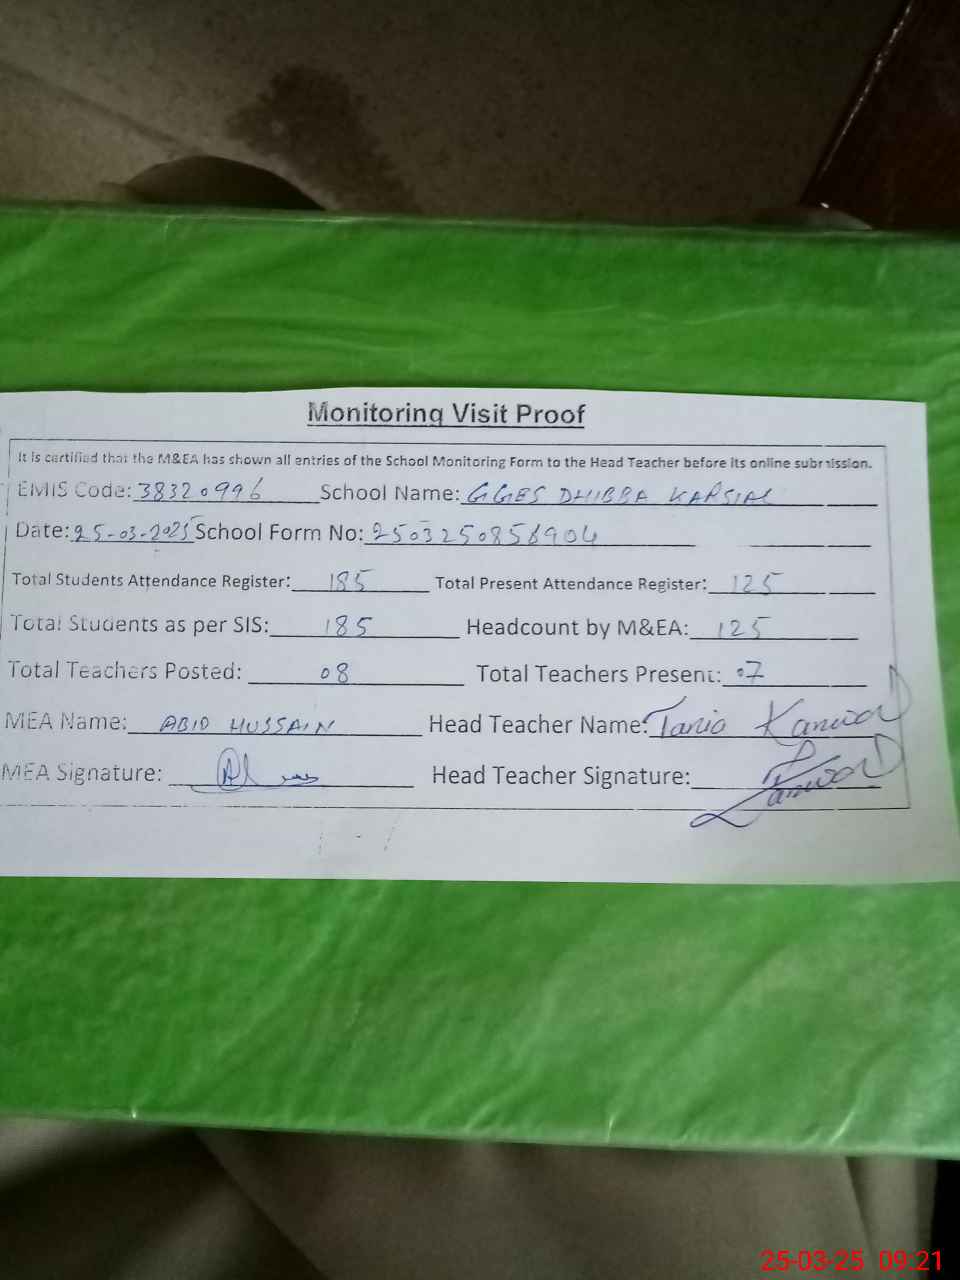 Monitoring Visit Proof
It is certified that the M&EA has shown all entries of the School Monitoring Form to the Head Teacher before its online submission.
EMIS Code: 38320996 School Name: GGES DHIBBA KARSIAL
Date: 25-03-2025 School Form No: 2503250856904
Total Students Attendance Register: 185 Total Present Attendance Register: 125
Total Students as per SIS: 185 Headcount by M&EA: 125
Total Teachers Posted: 08 Total Teachers Present: 07
MEA Name: ABID HUSSAIN Head Teacher Name: Tania Kanwal
MEA Signature: Head Teacher Signature: Kanwal
25-03-25 09:21